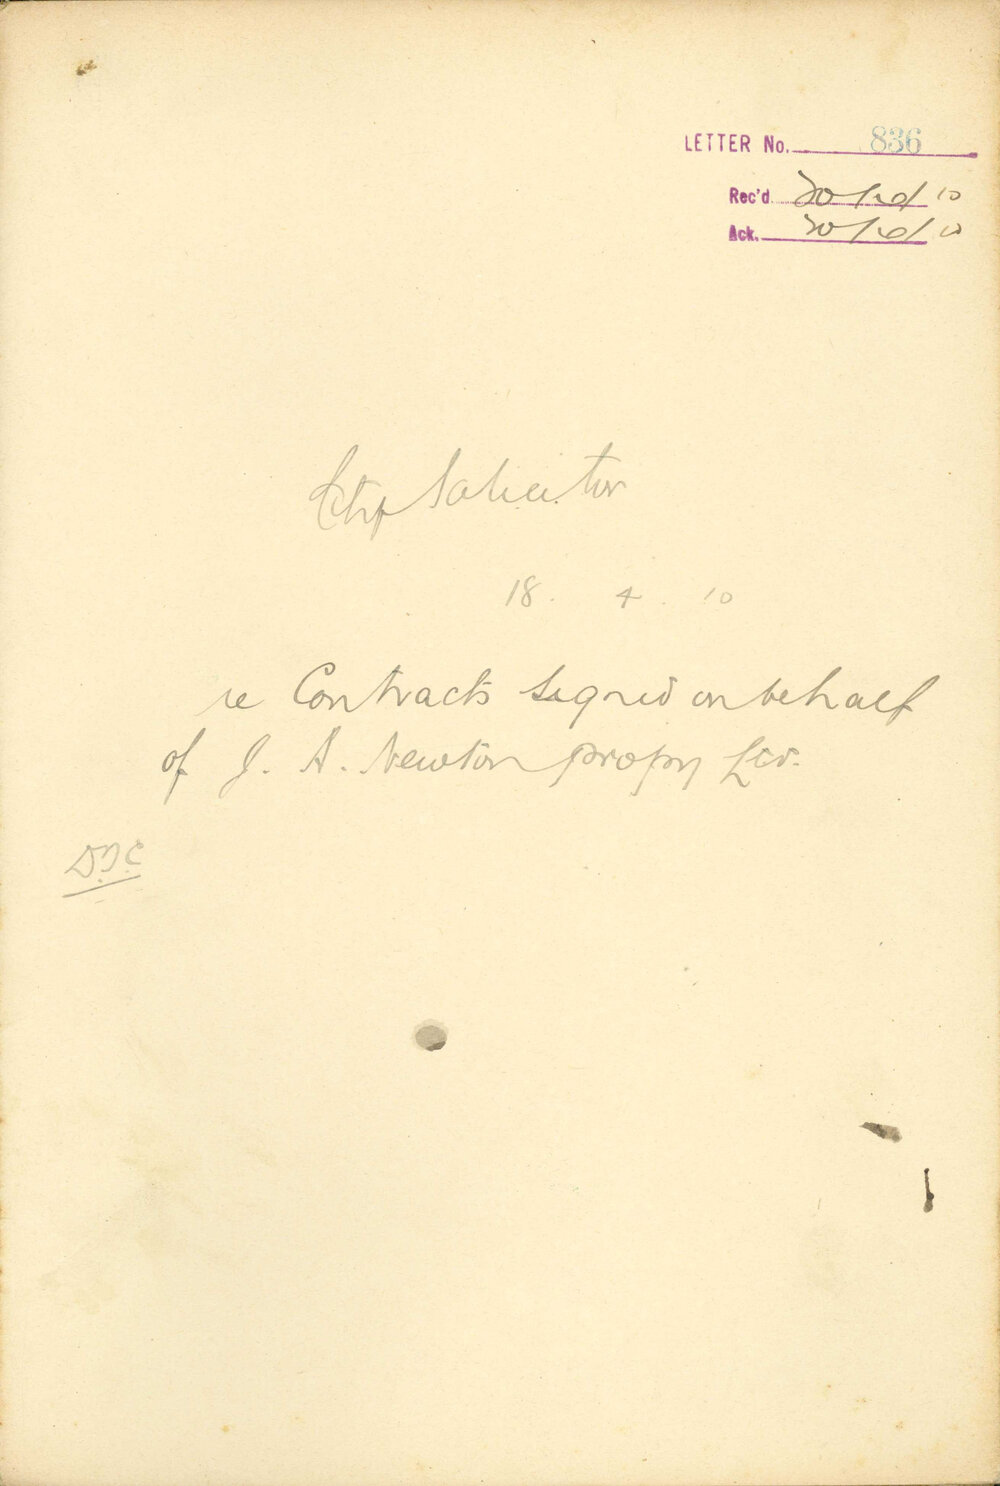 LETTER No. 836
Rec'd 10
Ack. 10
Solicitor
18. 4. 10
re Contracts signed on behalf
of J. A. Newton propy Ltd.